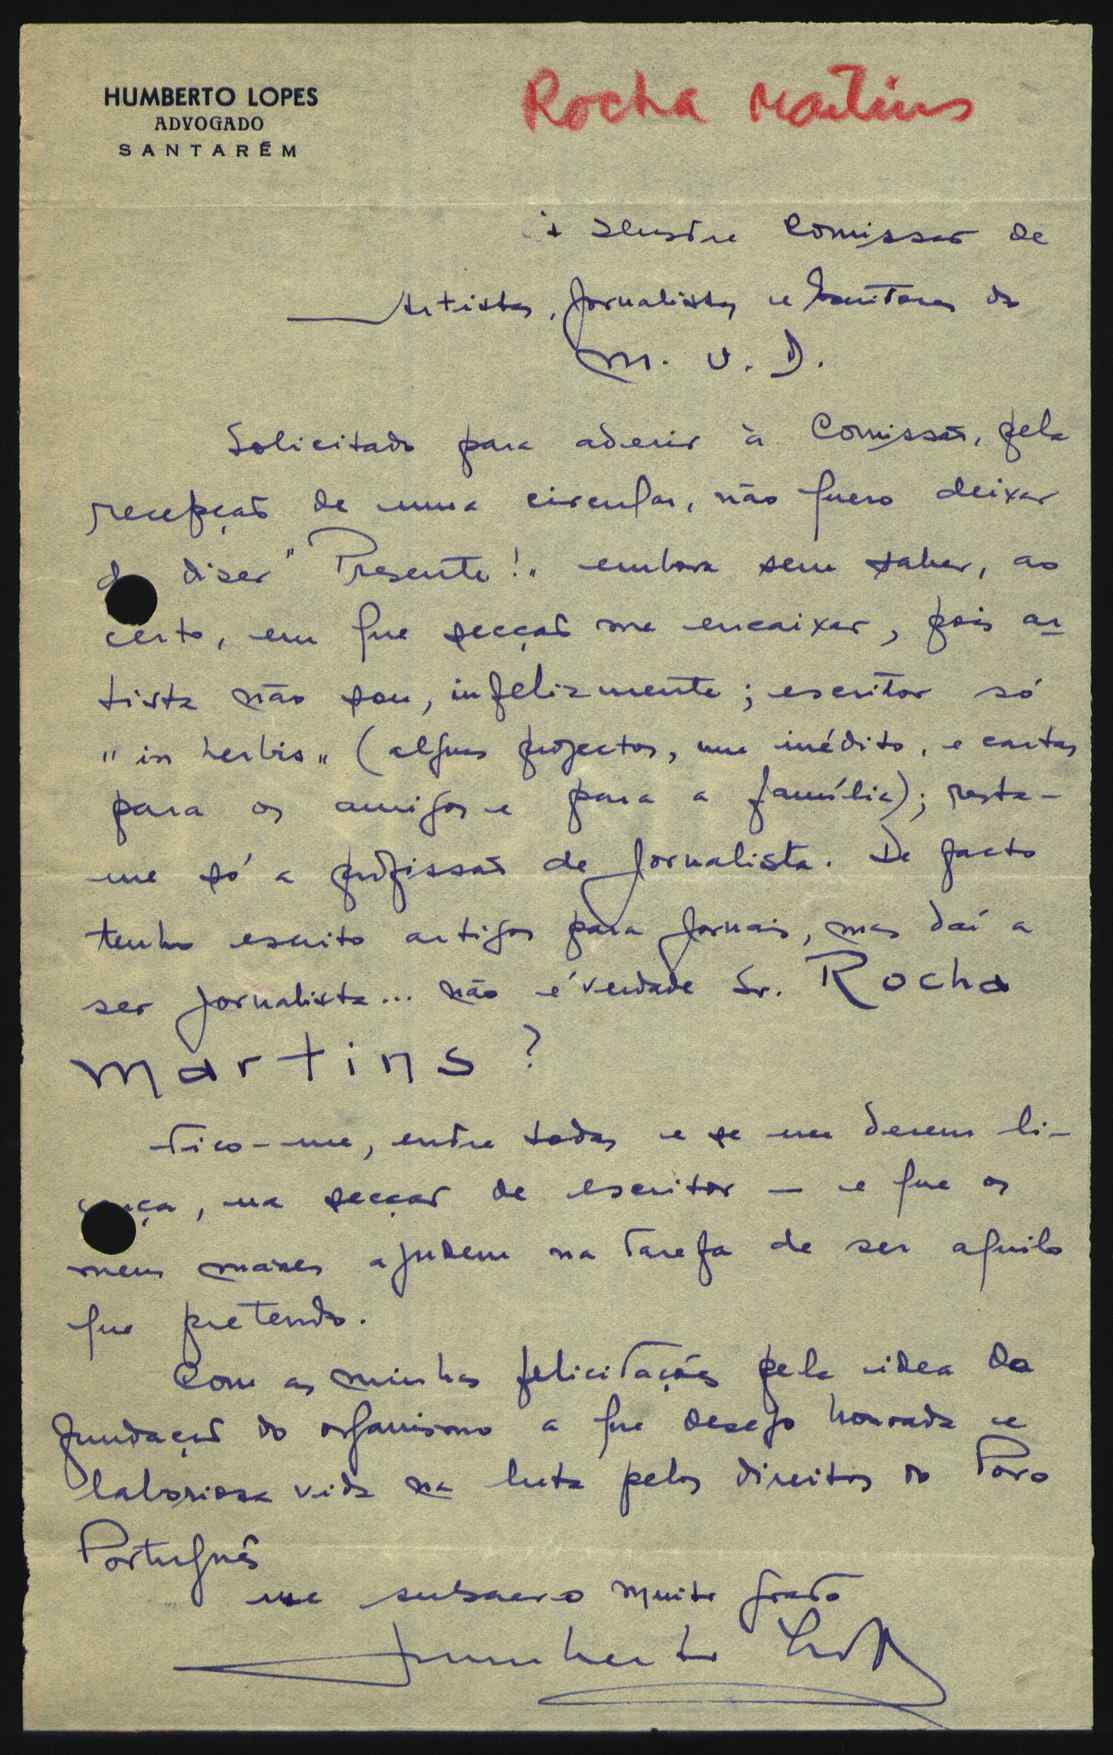 HUMBERTO LOPES
ADVOGADO
SANTARÉM
Rocha Martins
à Ilustre Comissão de
Artistas, Jornalistas e Escritores do
M. U. D.
Solicitado para aderir à Comissão, pela
recepção de uma circular, não quero deixar
de diser "Presente!" embora sem saber, ao
certo, em que secção me encaixar, pois ar
tista não sou, infelizmente; escritor só
"in herbis" (alguns projectos, um inédito, e cartas
para os amigos e para a família); resta-
me só a profissão de jornalista. De facto
tenho escrito artigos para jornais, mas daí a
ser jornalista... não é verdade Sr. Rocha
Martins?
Fico-me, entre todas e se me derem li-
cença, na secção de escritor — e que os
meus manes ajudem na tarefa de ser aquilo
que pretendo.
Com as minhas felicitações pela idea da
fundação do organismo a que desejo honrada e
laboriosa vida na luta pelos direitos do Povo
Português
me subscrevo muito grato
Humberto Lopes